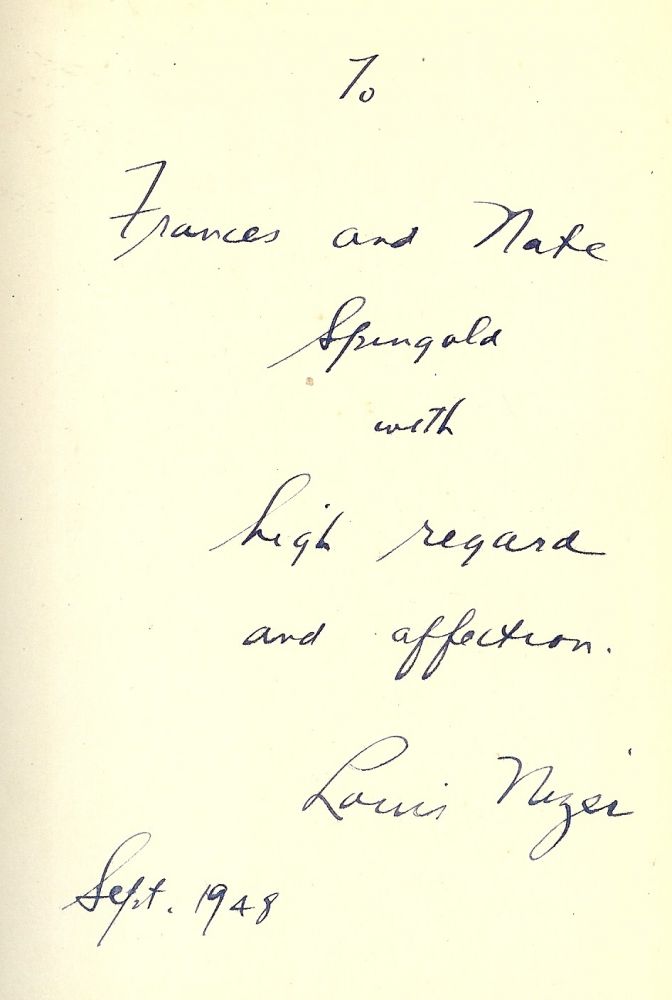 To
Frances and Nate
Spingold
with
high regard
and affection.
Louis Nizer
Sept. 1948